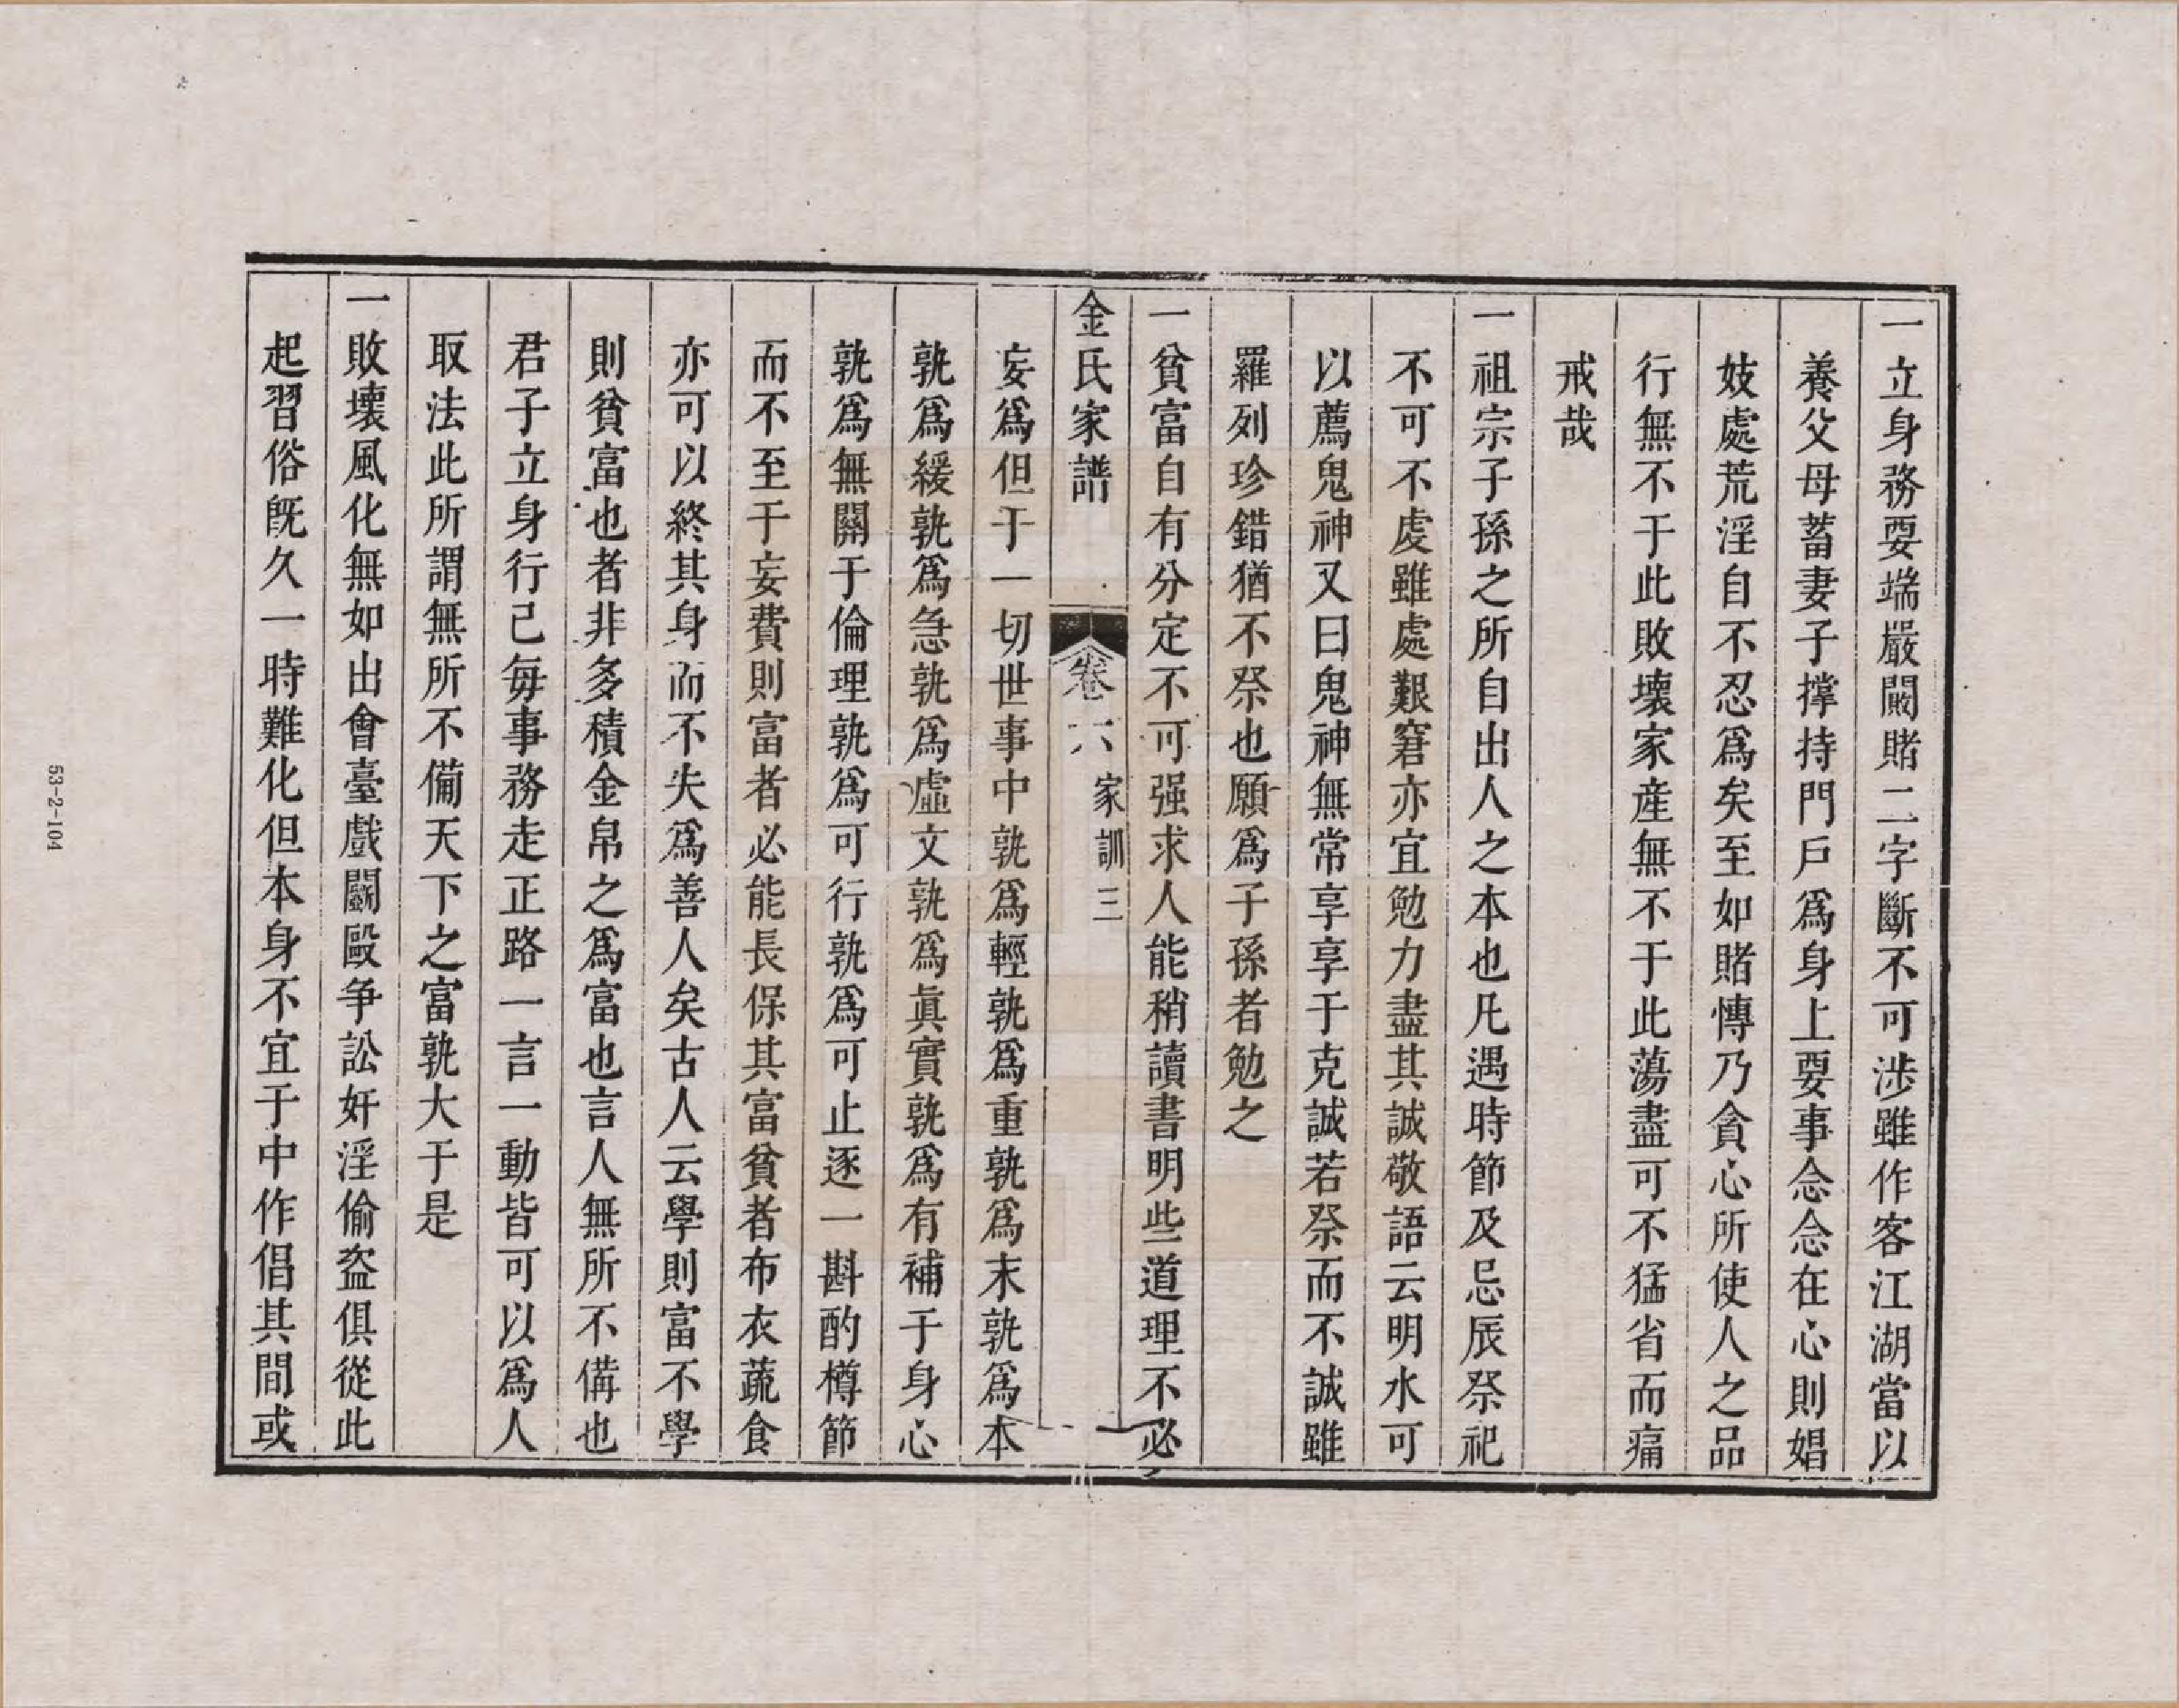 一立身務要端嚴闞賭二字斷不可涉雖作客江湖當以
養父母蓄妻子撑持門戶爲身上要事念念在心則娼
妓處荒淫自不忍爲矣至如賭慱乃貪心所使人之品
行無不于此敗壞家産無不于此蕩盡可不猛省而痛
戒哉
一祖宗子孫之所自出人之本也凡遇時節及忌辰祭祀
不可不虔雖處艱窘亦宜勉力盡其誠敬語云明水可
以薦鬼神又曰鬼神無常享享于克誠若祭而不誠雖
羅列珍錯猶不祭也願爲子孫者勉之
一貧富自有分定不可强求人能稍讀書明些道理不必
金氏家譜 卷六 家訓 三
妄爲但于一切世事中孰爲輕孰爲重孰爲末孰爲本
孰爲緩孰爲急孰爲虛文孰爲眞實孰爲有補于身心
孰爲無關于倫理孰爲可行孰爲可止逐一斟酌樽節
而不至于妄費則富者必能長保其富貧者布衣蔬食
亦可以終其身而不失爲善人矣古人云學則富不學
則貧富也者非多積金帛之爲富也言人無所不備也
君子立身行己每事務走正路一言一動皆可以爲人
取法此所謂無所不備天下之富孰大于是
一敗壞風化無如出會臺戲鬭毆争訟奸淫偷盜俱從此
起習俗旣久一時難化但本身不宜于中作倡其間或
53-2-104